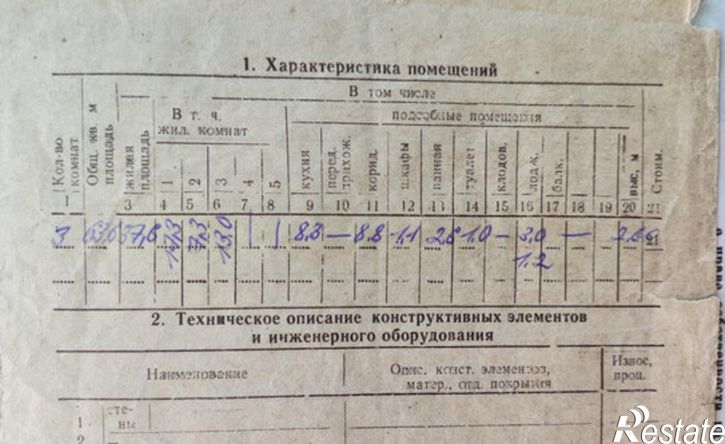 1. Характеристика помещений
Кол-во комнат
Общ. кв. м площадь
жилая площадь
В том числе
В т. ч. жил. комнат
подсобные помещения
1 2 3 4 5
кухня
перед. прихож.
корид.
шкафы
ванная
туалет
кладов.
лодж.
балк.
выс, м
Стоим.
1 3 4 5 6 7 8 9 10 11 12 13 14 15 16 17 18 19 20 21
3 17,3 13,0 8,3 — 8,8 1,1 2,6 1,0 — 3,0 —
1.2
2. Техническое описание конструктивных элементов
и инженерного оборудования
Наименование
Опис. конст. элементов,
матер., отд. покрытия
Износ,
проц.
1
сте-
ны
2
Restate